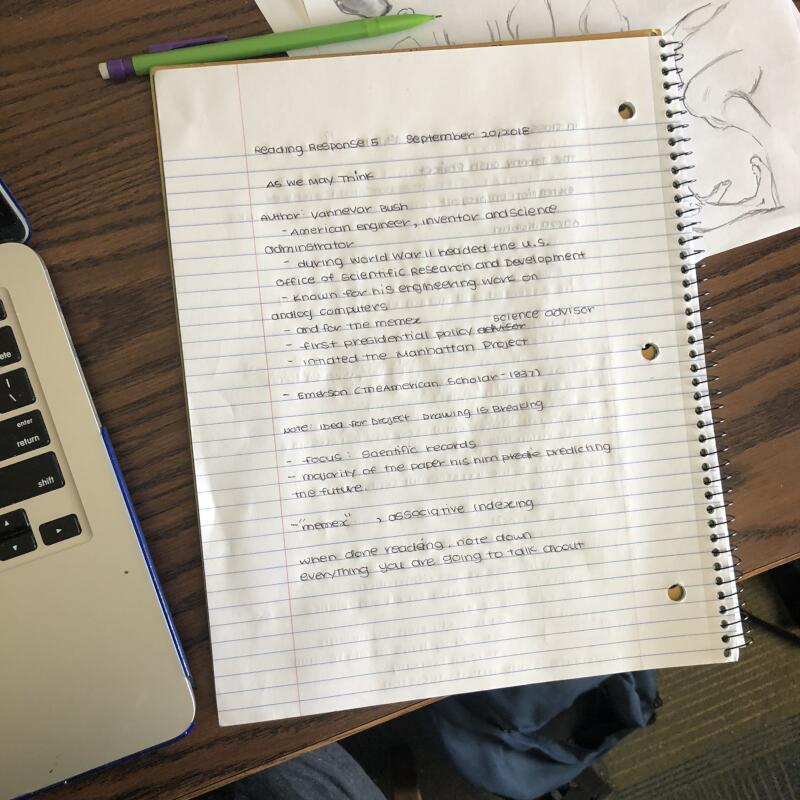 Reading Response 5 September 20, 2018
As we may Think
Author: Vannevar Bush
- American engineer, inventor and science
administrator
- during World War II headed the U.S.
Office of Scientific Research and Development
- known for his engineering work on
analog computers
- and for the memex
science advisor
- first presidential policy advisor
- initiated the Manhattan Project
- Emerson (The American Scholar - 1837)
Note: Idea for Project Drawing is Breaking
- focus: Scientific records
- majority of the paper his him predic predicting
the future.
- "memex" , associative indexing
when done reading, note down
everything you are going to talk about
delete
enter
return
shift